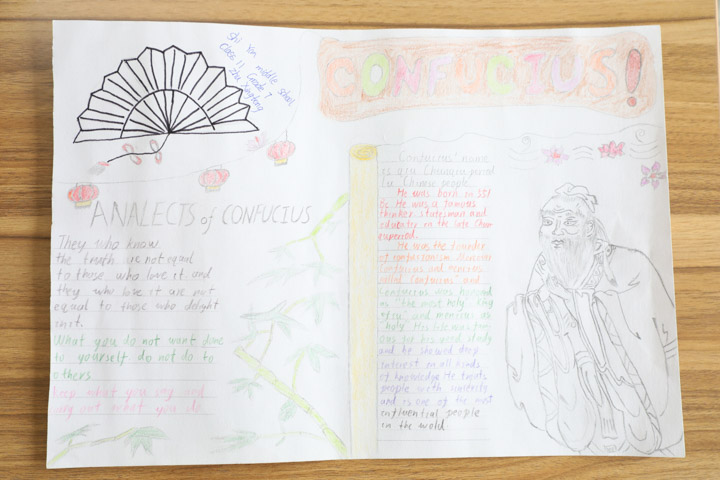 Shi Yan middle school
Class 11 Grade 7
CONFUCIUS!
ANALECTS of CONFUCIUS
They who know
the truth are not equal
to those who love it and
they who love it are not
equal to those who delight
in it.
What you do not want done
to yourself do not do to
others
keep what you say and
carry out what you do
Confucius' name
is
Chinese people
He was born in 551
BC. He was a famous
thinker statesman and
educator in the late Chun
He was the founder
of
Confucius and
called Confucius" and
Confucius was honored
as "the most holy king
and mencius as
holy" His life was
for his good study
and he showed deep
interest in all kinds
of knowledge He treats
people with
and is one of the most
influential people
in the wold